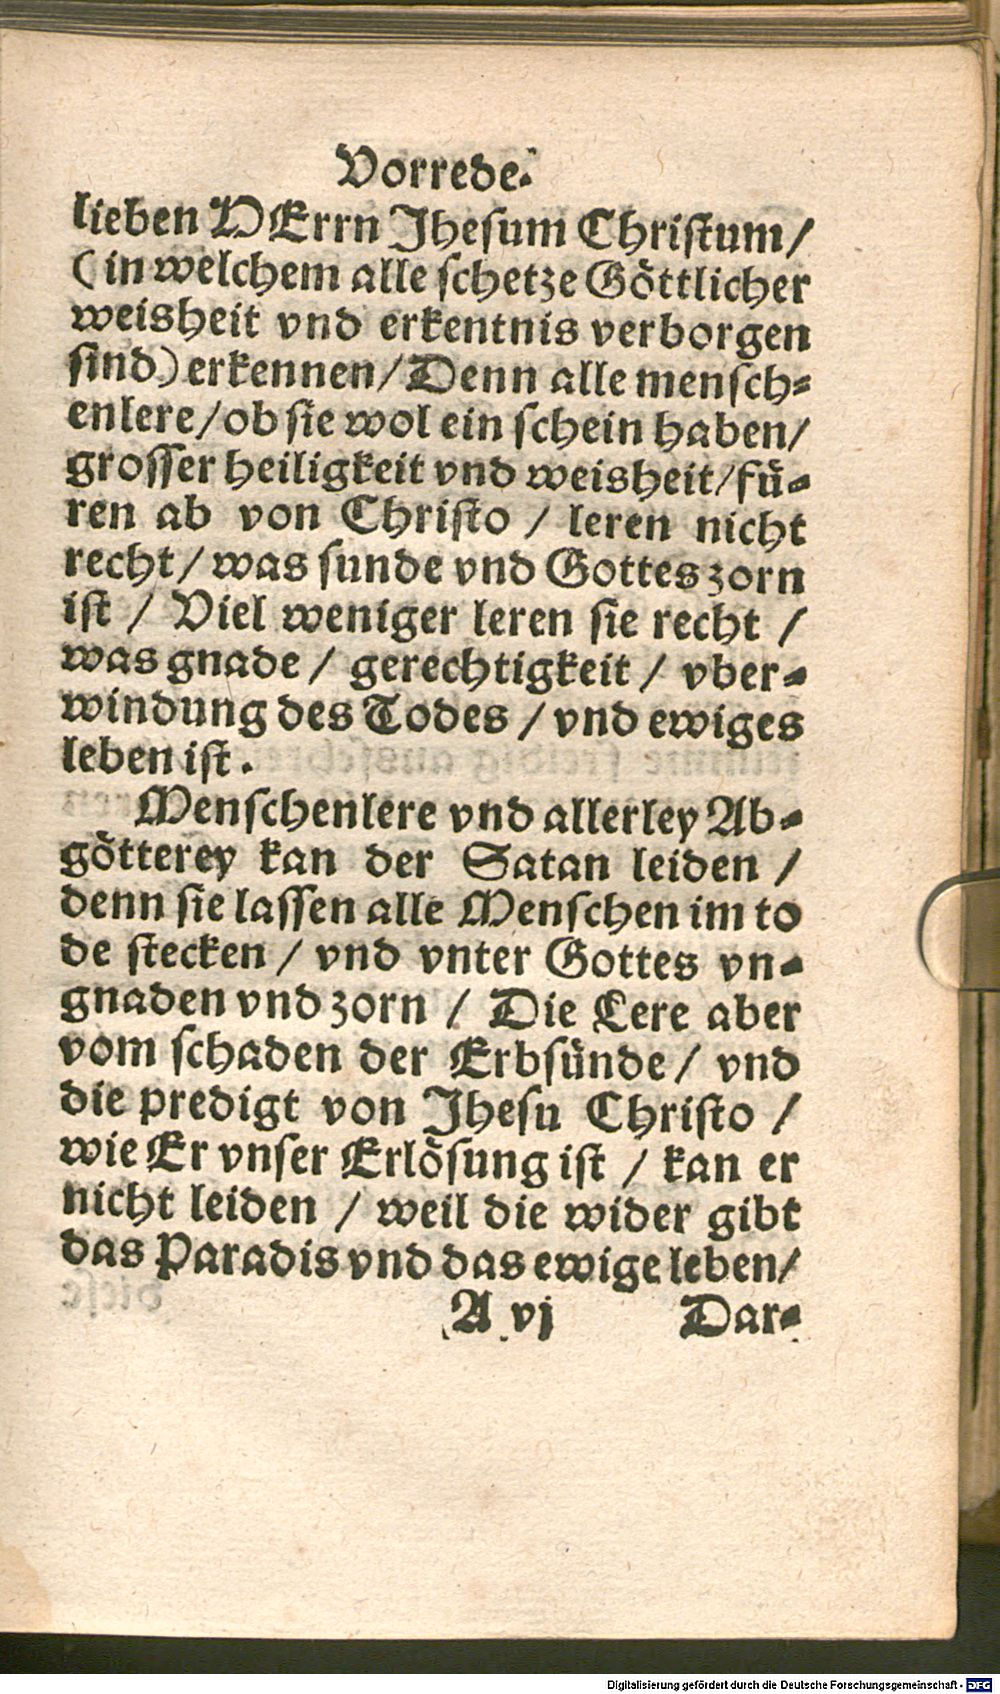 Vorrede.
lieben HErrn Jhesum Christum/
(in welchem alle schetze Göttlicher
weisheit vnd erkentnis verborgen
sind) erkennen/Denn alle mensch-
enlere/ob sie wol ein schein haben/
grosser heiligkeit vnd weisheit/fü-
ren ab von Christo / leren nicht
recht/was sunde vnd Gottes zorn
ist / Viel weniger leren sie recht /
was gnade / gerechtigkeit / vber-
windung des Todes /vnd ewiges
leben ist.
Menschenlere vnd allerley Ab-
götterey kan der Satan leiden /
denn sie lassen alle Menschen im to
de stecken / vnd vnter Gottes vn-
gnaden vnd zorn / Die Lere aber
vom schaden der Erbsünde/ vnd
die predigt von Jhesu Christo /
wie Er vnser Erlösung ist / kan er
nicht leiden / weil die wider gibt
das Paradis vnd das ewige leben/
A vj Dar-
Digitalisierung gefördert durch die Deutsche Forschungsgemeinschaft - DFG